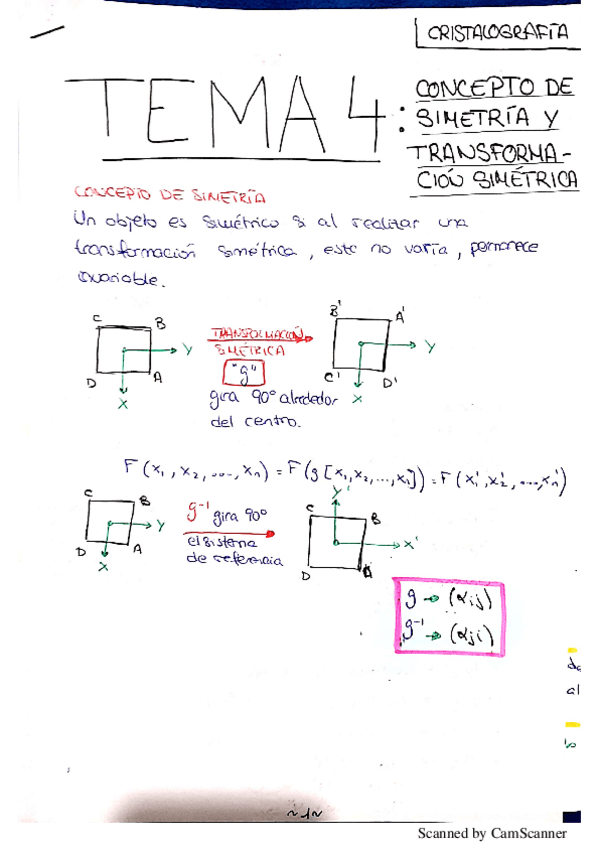 CRISTALOGRAFÍA
TEMA 4:
CONCEPTO DE
SIMETRÍA Y
TRANSFORMA-
CIÓN SIMÉTRICA
CONCEPTO DE SIMETRÍA
Un objeto es simétrico si al realizar una
transformación simétrica, este no varía, permanece
invariable.
C B Y D A X
TRANSFORMACIÓN
SIMÉTRICA
"g"
gira 90º alrededor
del centro.
B' A' Y C' D' X
F(x₁, x₂, ..., xₙ) = F(g[x₁, x₂, ..., xₙ]) = F(x₁', x₂', ..., xₙ')
C B Y D A X
g⁻¹ gira 90º
el sistema
de referencia
Y' C B X' D A
g → (αij)
g⁻¹ → (αji)
de
al
lo
~1~
Scanned by CamScanner